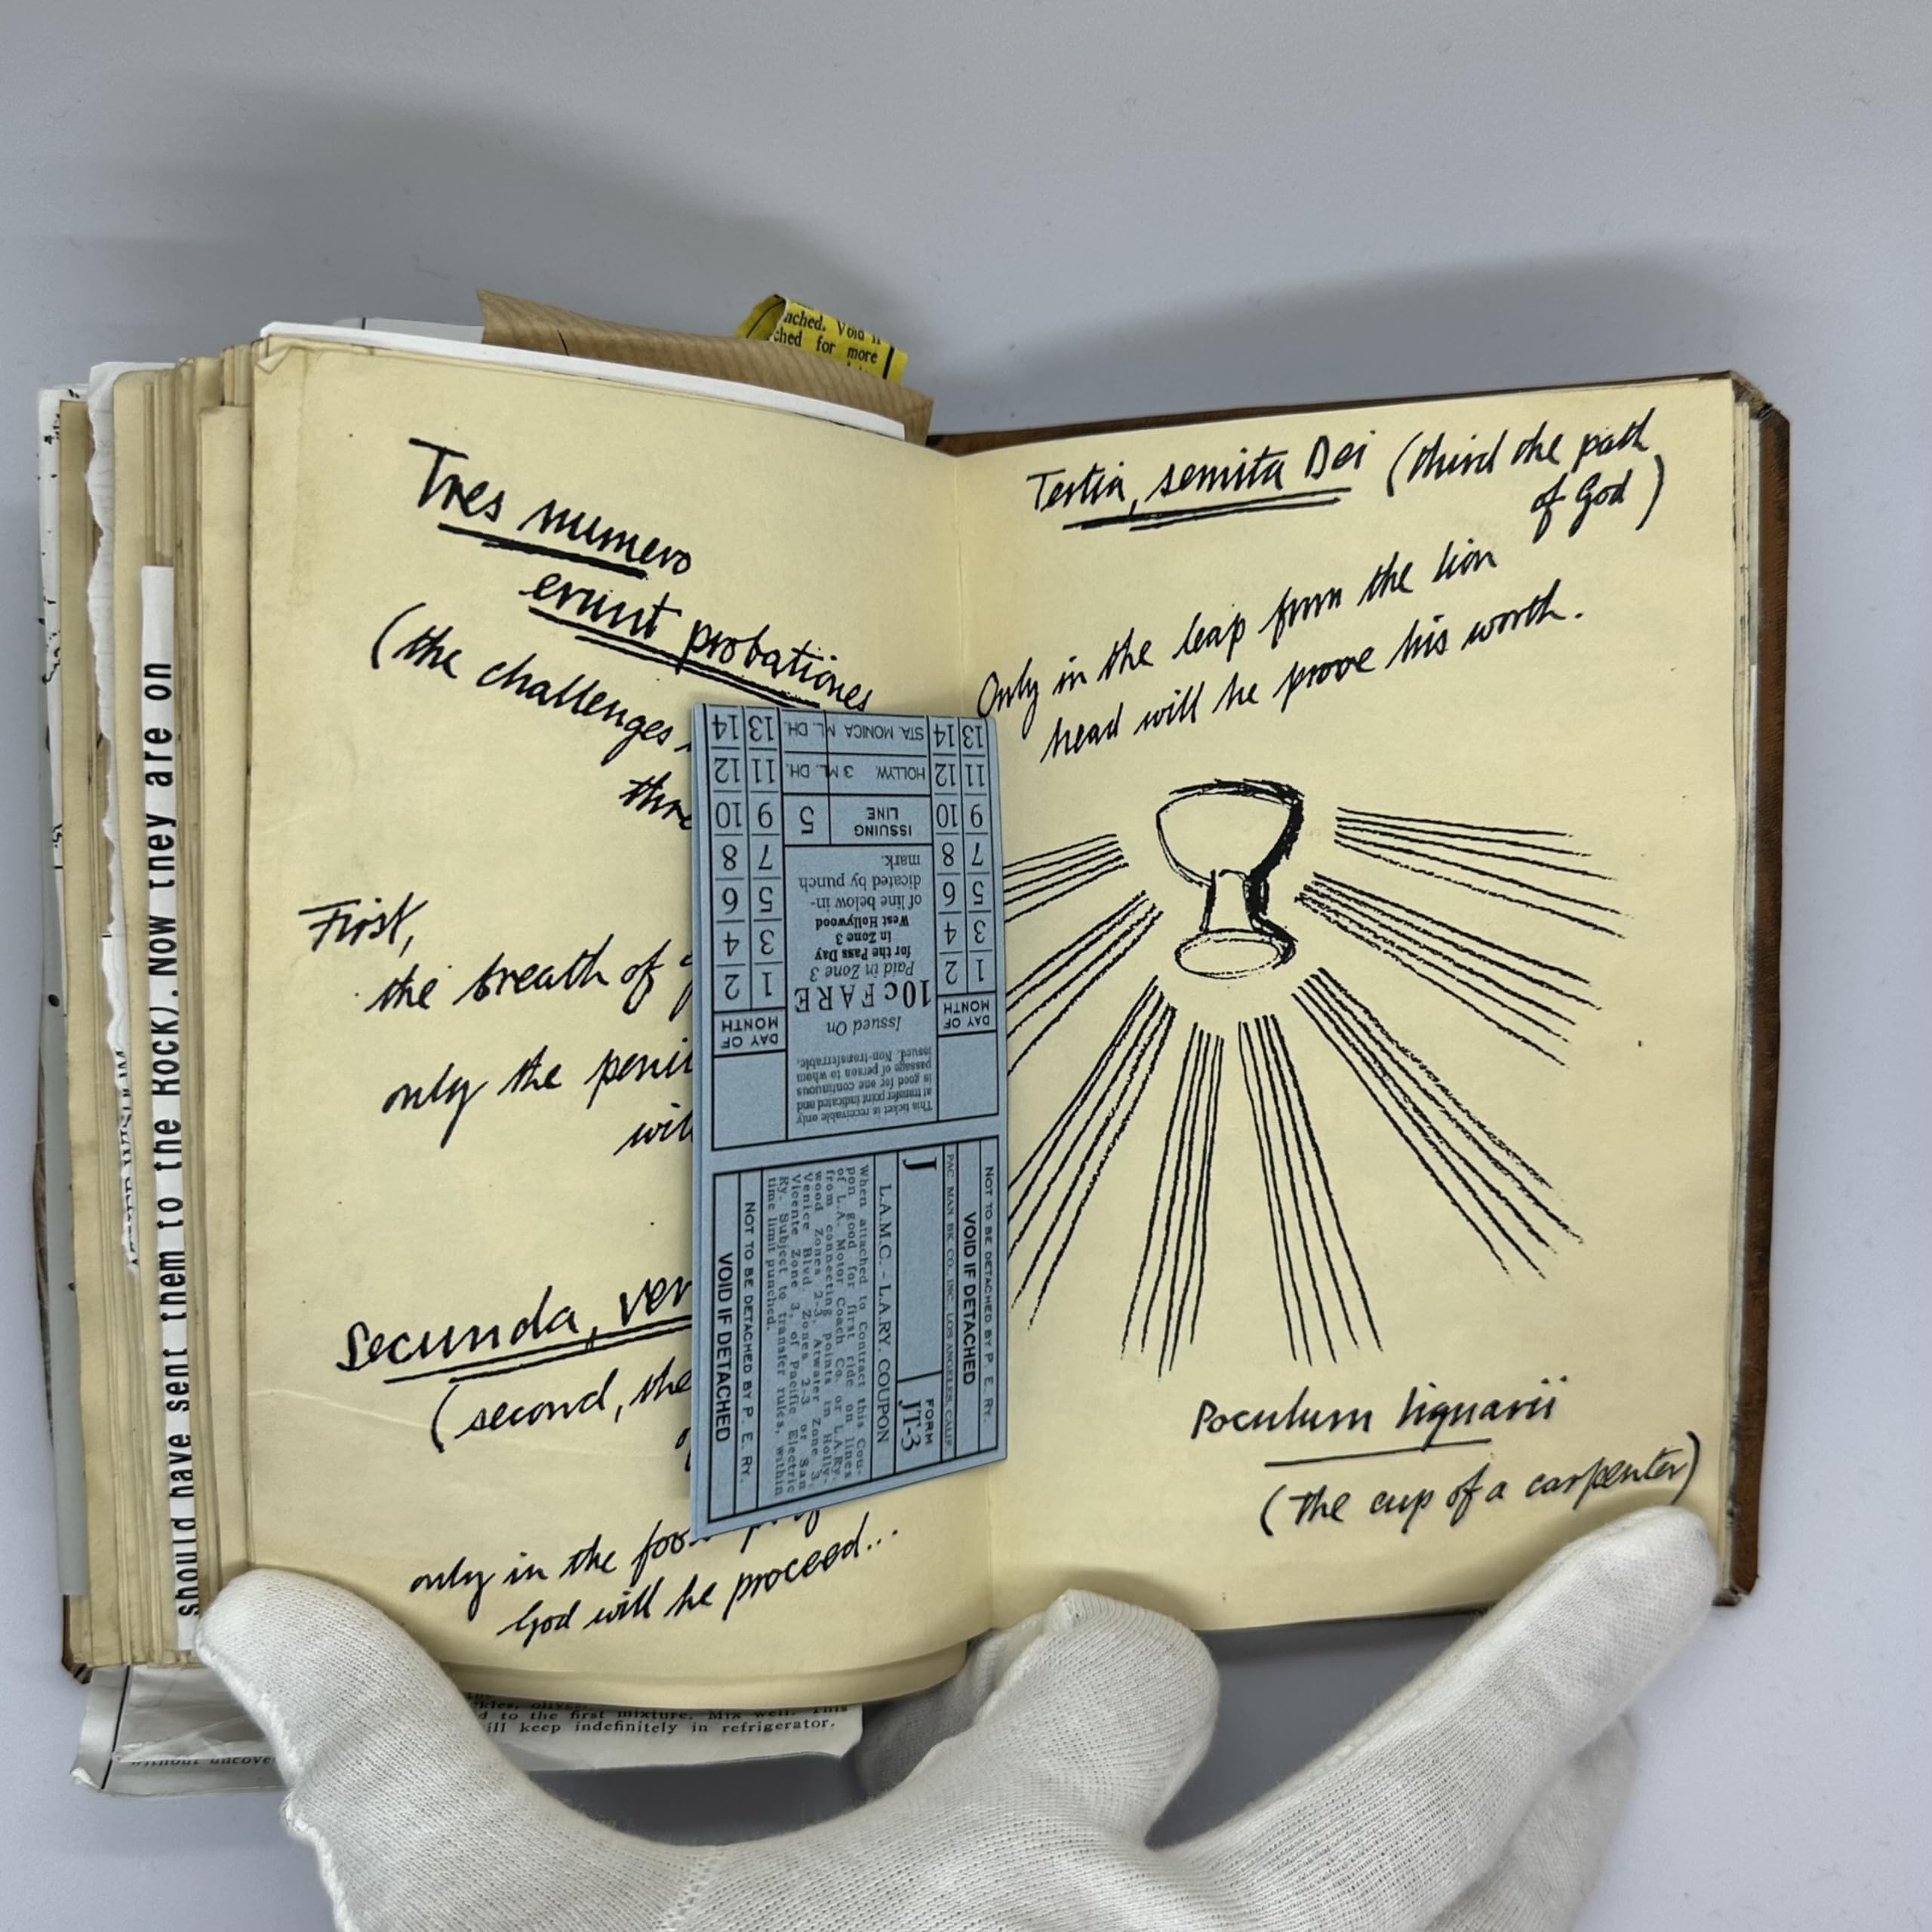 nched. Void if
ched for more
should have sent them to the ROCK). Now they are on
Tres numero
erunt probationes
(the challenges
thre
First,
the breath of
only the peni
will
Secunda, ver
(second, the
only in the foo
God will he proceed...
Tertia, semita Dei (third the path
of God)
Only in the leap from the lion
head will he prove his worth.
Poculum lignarii
(the cup of a carpenter)
This ticket is receivable only
at transfer point indicated and
is good for one continuous
passage of person to whom
issued. Non-transferrable.
Issued On
10c FARE
Paid in Zone 3
for the Pass Day
in Zone 3
West Hollywood
of line below in-
dicated by punch
mark.
ISSUING
LINE
5
HOLLYW. 3 ML. DH.
STA. MONICA M.L. DH.
DAY OF
MONTH
1 2
3 4
5 6
7 8
9 10
11 12
13 14
DAY OF
MONTH
1 2
3 4
5 6
7 8
9 10
11 12
13 14
NOT TO BE DETACHED BY P. E. RY.
VOID IF DETACHED
PAC. MAN. BK. CO., INC., LOS ANGELES, CALIF.
J
FORM
JT-3
L.A.M.C. - L.A.RY. COUPON
When attached to Contract this Cou-
pon good for first ride on lines
of L.A. Motor Coach Co. or L.A.Ry.
from connecting points in Holly-
wood Zones 2-3, Atwater Zone 3,
Venice Blvd. Zones 2-3 or San
Vicente Zone 3, of Pacific Electric
Ry. Subject to transfer rules, within
time limit punched.
NOT TO BE DETACHED BY P. E. RY.
VOID IF DETACHED
d to the first mixture. Mix well. This
ill keep indefinitely in refrigerator.
without uncove